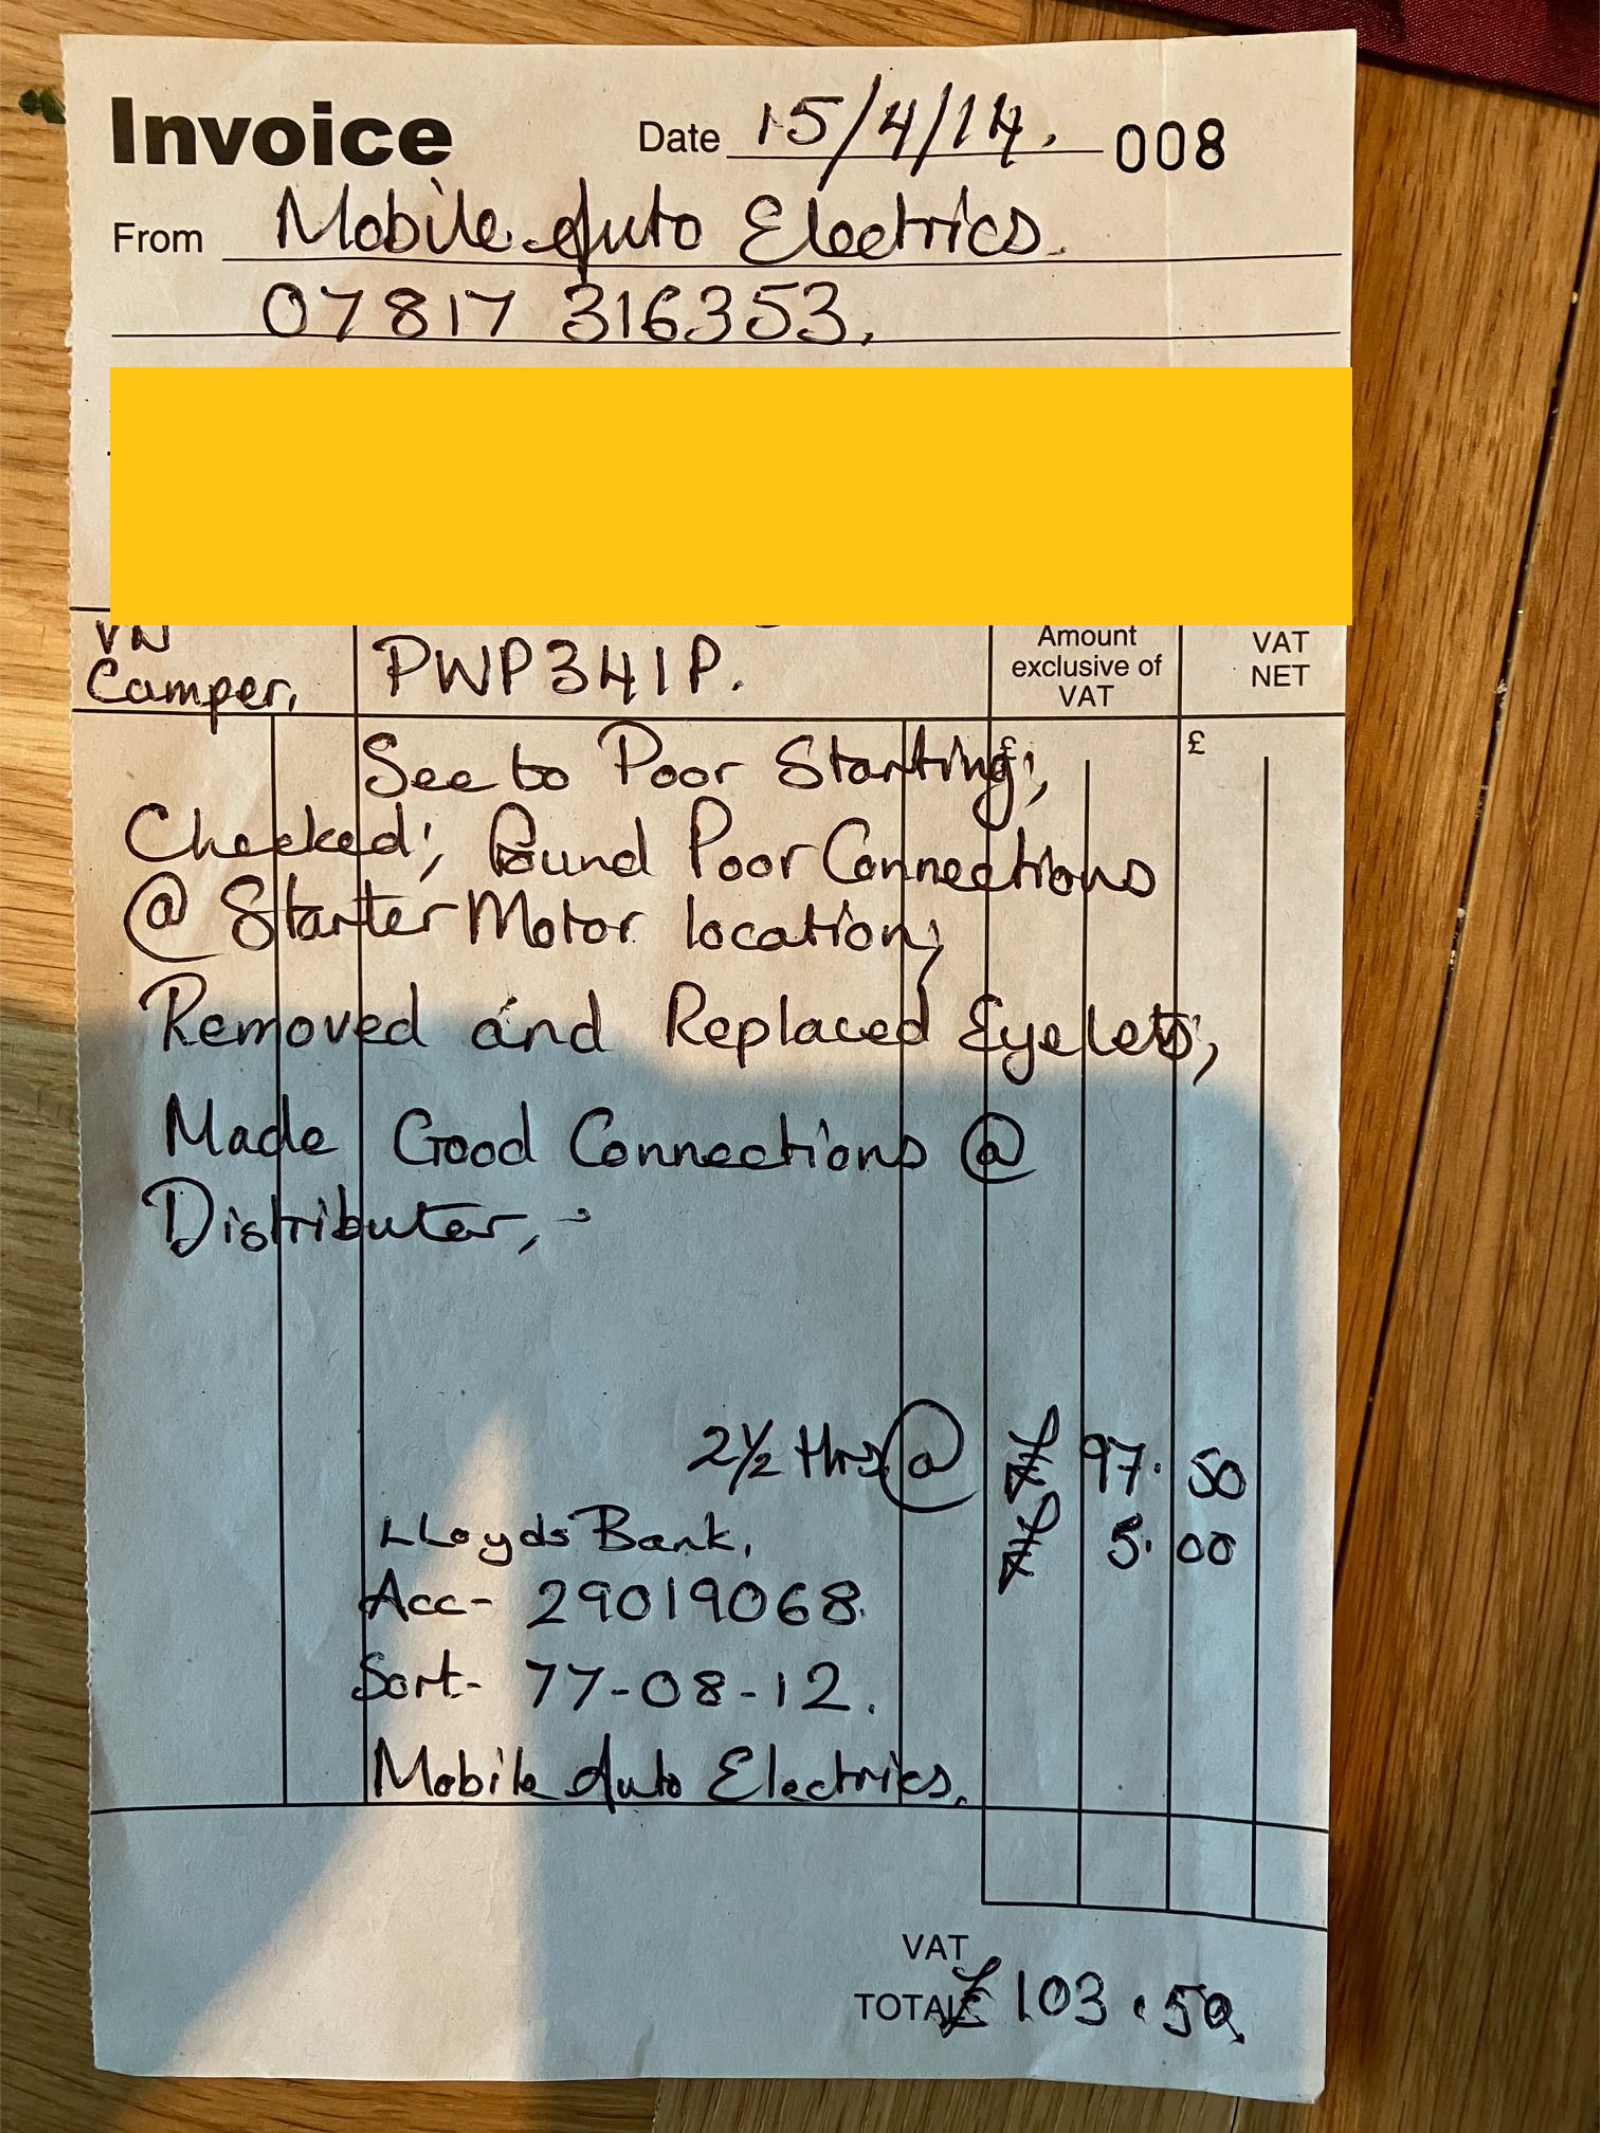 Invoice Date 15/4/14. 008
From Mobile Auto Electrics.
07817 316353,
VW
Camper,
PWP341P.
Amount
exclusive of
VAT
VAT
NET
£ £
See to Poor Starting;,
Checked; Found Poor Connections
@ Starter Motor location;
Removed and Replaced Eyelets,
Made Good Connections @
Distributer, -
2½ Hrs @ £ 97. 50
£ 5. 00
Lloyds Bank,
Acc- 29019068.
Sort- 77-08-12.
Mobile Auto Electrics.
VAT
TOTAL £ 103.50